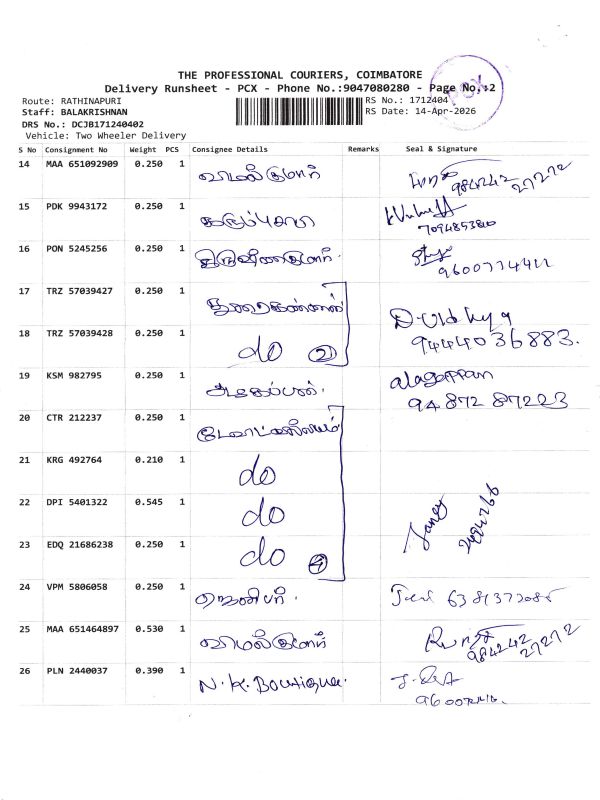 THE PROFESSIONAL COURIERS, COIMBATORE
Delivery Runsheet - PCX - Phone No.:9047080280 - Page No.:2
PCX
Route: RATHINAPURI
RS No.: 1712404
Staff: BALAKRISHNAN
RS Date: 14-Apr-2026
DRS No.: DCJB171240402
Vehicle: Two Wheeler Delivery
S No Consignment No Weight PCS Consignee Details Remarks Seal & Signature
14 MAA 651092909 0.250 1 விமல்குமார் 984242 27272
15 PDK 9943172 0.250 1 கருப்பசாமி
16 PON 5245256 0.250 1
17 TRZ 57039427 0.250 1 D. Vidhya
18 TRZ 57039428 0.250 1 do 2 9444036883.
19 KSM 982795 0.250 1 அழகப்பன். alagappan
94872 87223
20 CTR 212237 0.250 1
21 KRG 492764 0.210 1 do
22 DPI 5401322 0.545 1 do
23 EDQ 21686238 0.250 1 do 4
24 VPM 5806058 0.250 1 ஜெனிபர்.
25 MAA 651464897 0.530 1 விமல்குமார் 984242 27272
26 PLN 2440037 0.390 1 N. K. Boutique.